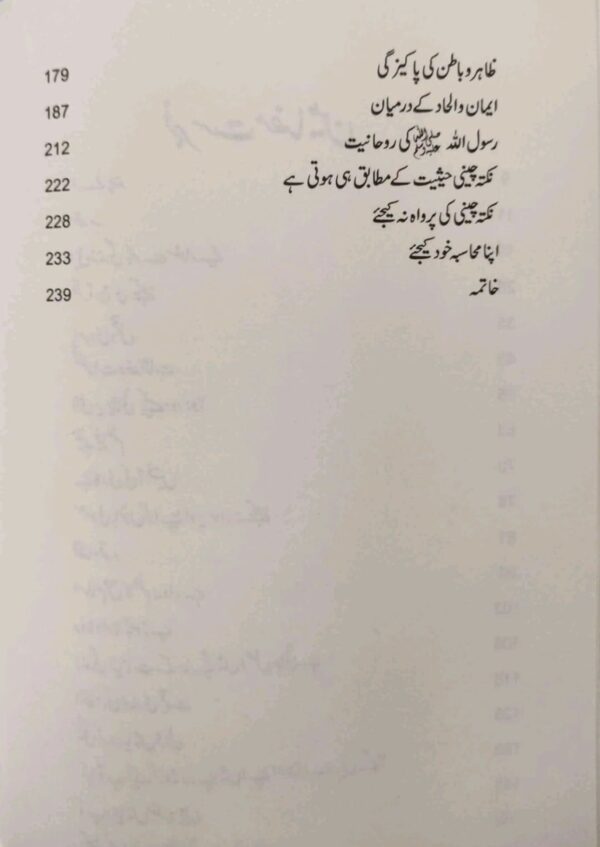 ظاہر و باطن کی پاکیزگی 179
ایمان والحاد کے درمیان 187
رسول اللہ ﷺ کی روحانیت 212
نکتہ چینی حیثیت کے مطابق ہی ہوتی ہے 222
نکتہ چینی کی پرواہ نہ کیجئے 228
اپنا محاسبہ خود کیجئے 233
خاتمہ 239